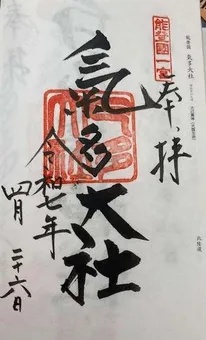 能登國一宮
奉拝
氣多大社
令和七年
四月二十六日
氣多大社